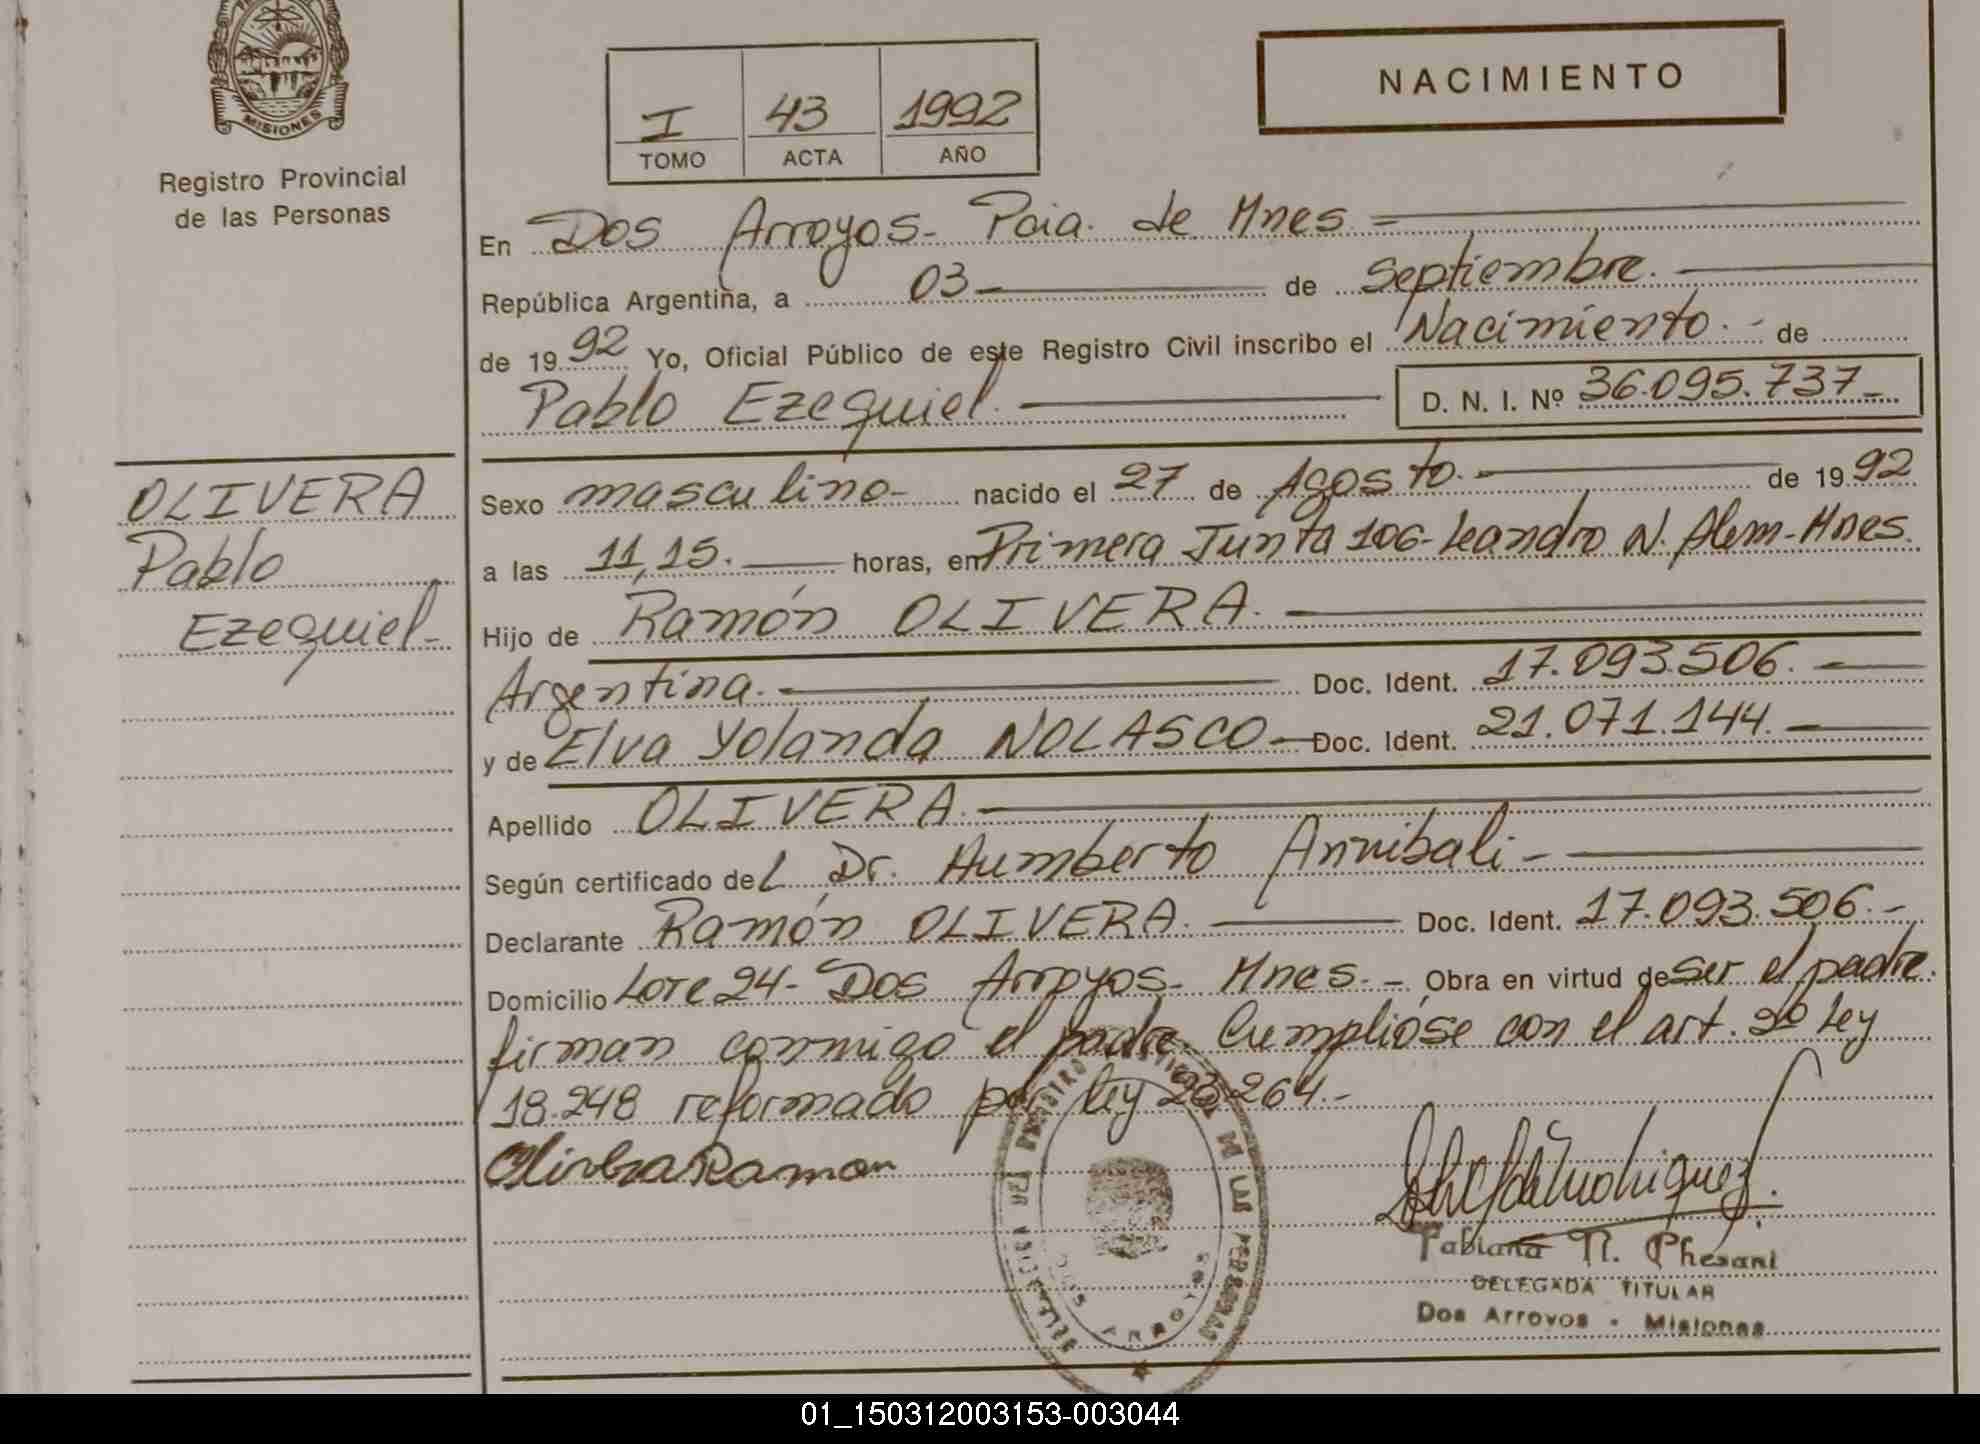 MISIONES
Registro Provincial
de las Personas
I 43 1992
TOMO ACTA AÑO
NACIMIENTO
En Dos Arroyos- Pcia. de Mnes. -
República Argentina, a 03- de septiembre.
de 1992 Yo, Oficial Público de este Registro Civil inscribo el Nacimiento.- de
Pablo Ezequiel. D. N. I. Nº 36.095.737-
OLIVERA
Pablo
Ezequiel-
Sexo masculino- nacido el 27 de Agosto.- de 1992
a las 11,15. horas, en Primera Junta 106- Leandro N. Alem-Mnes.
Hijo de Ramón OLIVERA.
Argentina.- Doc. Ident. 17.093.506.-
y de Elva Yolanda NOLASCO- Doc. Ident. 21.071.144.-
Apellido OLIVERA.-
Según certificado del Dr. Humberto Annibali-
Declarante Ramón OLIVERA. Doc. Ident. 17.093.506.-
Domicilio Lote 24- Dos Arroyos- Mnes.- Obra en virtud de ser el padre.
firman conmigo el padre. Cumplióse con el art. 2º Ley
18.248 reformado por ley 23.264.-
Olivera Ramon
DE LAS PERSONAS
DOS ARROYOS
Fabiana N. Phesani
DELEGADA TITULAR
Dos Arroyos - Misiones
01_150312003153-003044